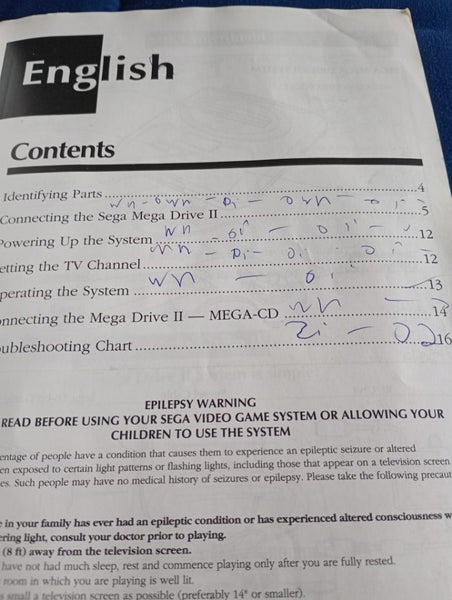 English
Contents
Identifying Parts 4
Connecting the Sega Mega Drive II 5
Powering Up the System 12
etting the TV Channel 12
perating the System 13
nnecting the Mega Drive II — MEGA-CD 14
ubleshooting Chart 16
EPILEPSY WARNING
READ BEFORE USING YOUR SEGA VIDEO GAME SYSTEM OR ALLOWING YOUR
CHILDREN TO USE THE SYSTEM
entage of people have a condition that causes them to experience an epileptic seizure or altered
en exposed to certain light patterns or flashing lights, including those that appear on a television screen
es. Such people may have no medical history of seizures or epilepsy. Please take the following precaut
e in your family has ever had an epileptic condition or has experienced altered consciousness w
ering light, consult your doctor prior to playing.
(8 ft) away from the television screen.
have not had much sleep, rest and commence playing only after you are fully rested.
room in which you are playing is well lit.
s small a television screen as possible (preferably 14" or smaller).